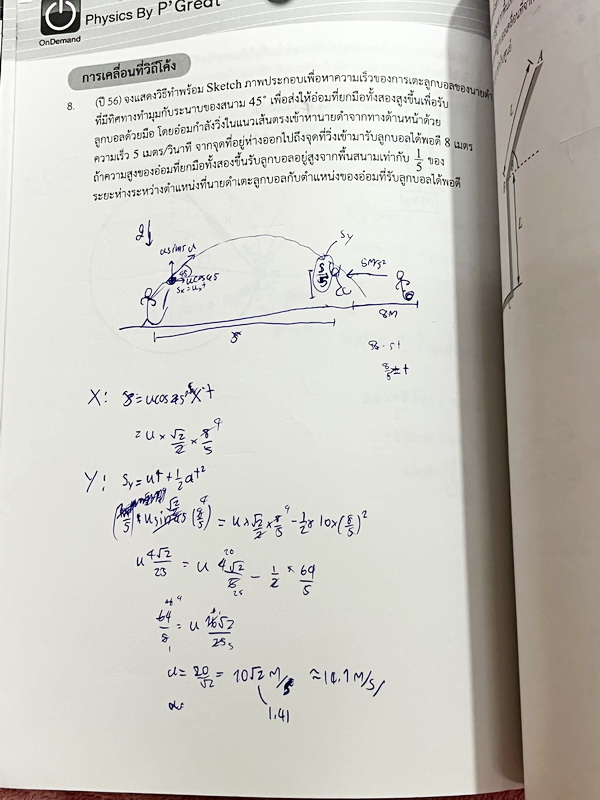 OnDemand
Physics By P'Great
การเคลื่อนที่วิถีโค้ง
8. (ปี 56) จงแสดงวิธีทำพร้อม Sketch ภาพประกอบเพื่อหาความเร็วของการเตะลูกบอลของนายดำ
ที่มีทิศทางทำมุมกับระนาบของสนาม 45° เพื่อส่งให้อ๋อมที่ยกมือทั้งสองสูงขึ้นเพื่อรับ
ลูกบอลด้วยมือ โดยอ่อมกำลังวิ่งในแนวเส้นตรงเข้าหานายดำจากทางด้านหน้าด้วย
ความเร็ว 5 เมตร/วินาที จากจุดที่อยู่ห่างออกไปถึงจุดที่วิ่งเข้ามารับลูกบอลได้พอดี 8 เมตร
ถ้าความสูงของอ่อมที่ยกมือทั้งสองขึ้นรับลูกบอลอยู่สูงจากพื้นสนามเท่ากับ 1/5 ของ
ระยะห่างระหว่างตำแหน่งที่นายดำเตะลูกบอลกับตำแหน่งของอ่อมที่รับลูกบอลได้พอดี
usin45 u
45
ucos45
Sx = uxt
Sy
S/5
8M
S
8 = 5t
8/5 = t
X: S = ucos45 x t
= u x √2/2 x 8/5
Y: Sy = ut + 1/2 at²
= u x √2/2 x 8/5 - 1/2 x 10 x (8/5)²
u 4√2/25 = u 4√2/5 - 1/2 x 64/5
64/5 = u 16√2/25
u = 20/√2 = 10√2 M/s ≈ 14.1 M/s
1.41
A
L
L